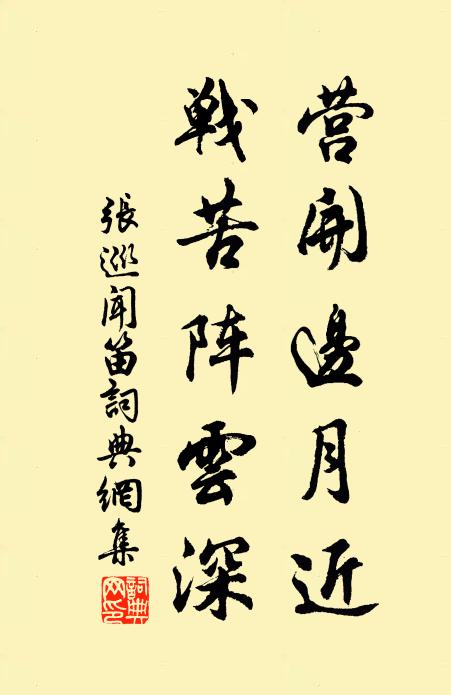 营開邊月近
戦苦阵雲深
張巡聞笛詞典網集
詞典网印